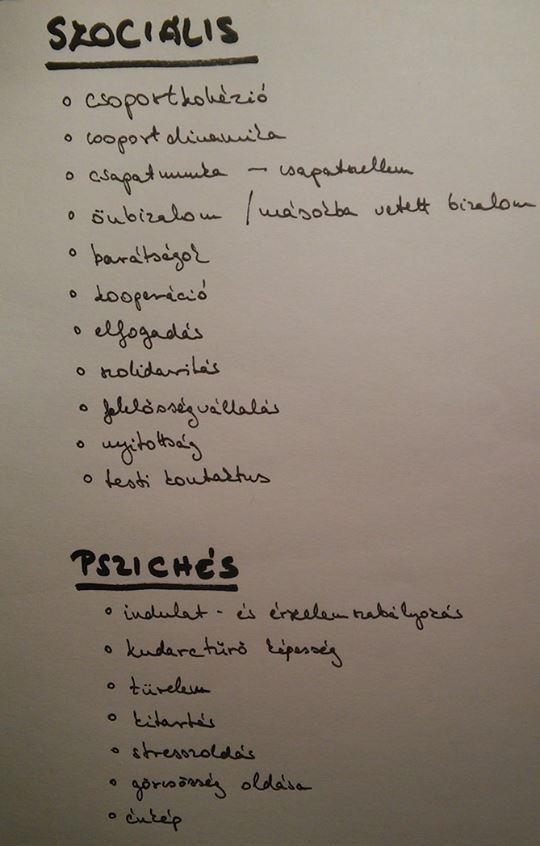 SZOCIÁLIS
csoportkohézió
csoportdinamika
csapatmunka – csapatszellem
önbizalom / másokba vetett bizalom
barátságok
kooperáció
elfogadás
szolidaritás
felelősségvállalás
nyitottság
testi kontaktus
PSZICHÉS
indulat- és érzelemszabályozás
kudarctűrő képesség
türelem
kitartás
stresszoldás
görcsösség oldása
énkép